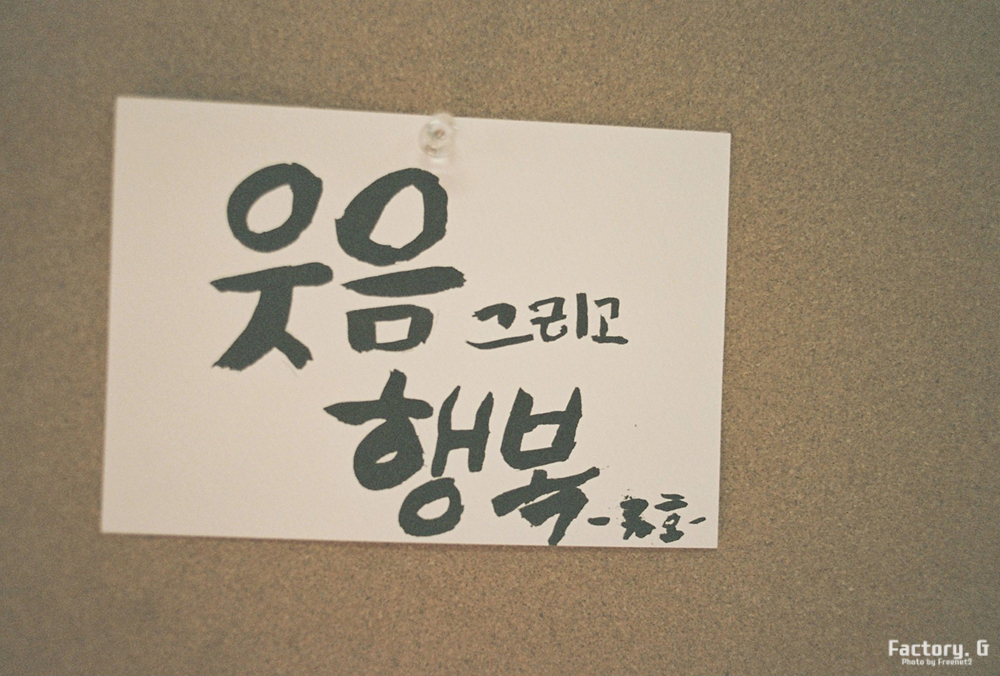 웃음 그리고
행복
Factory. G
Photo by Freenet2